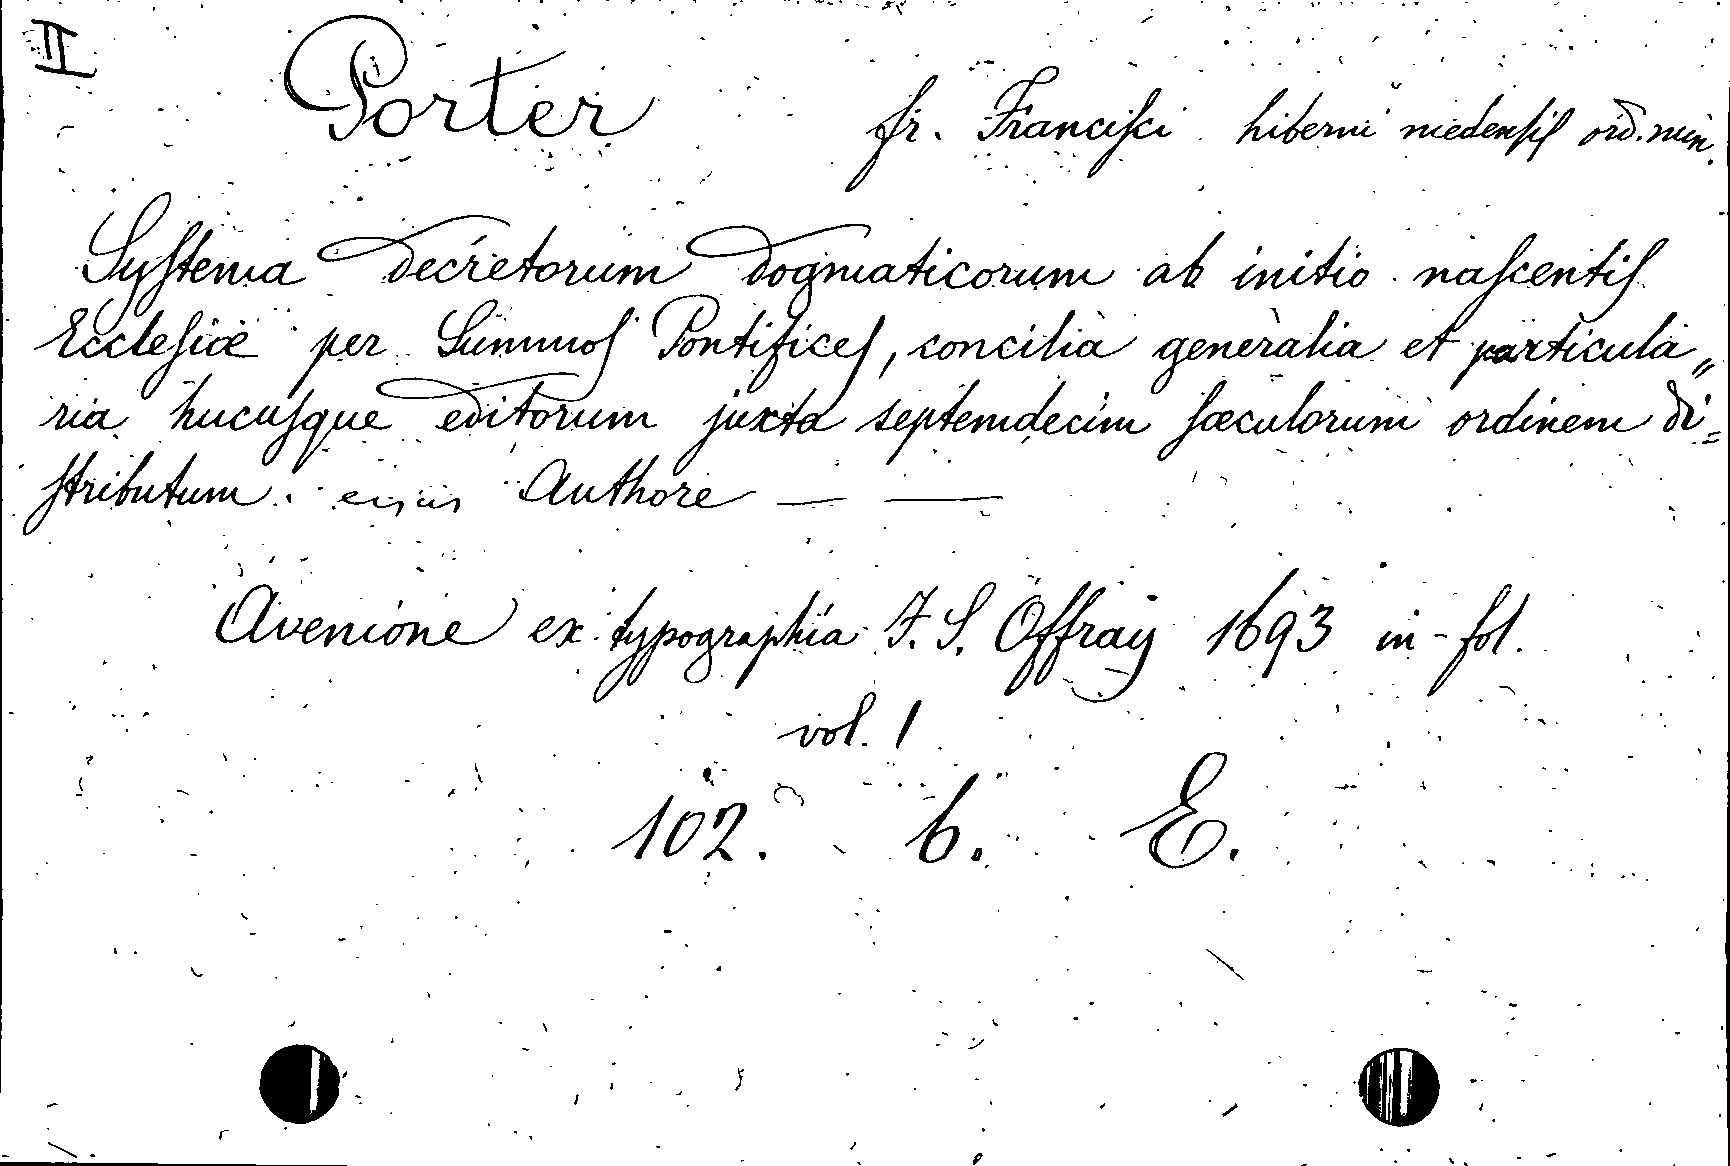 II
Porter fr. Franciſci hiberni medenſiſ ord. min.
Syſtema decretorum dogmaticorum ab initio naſcentiſ
Eccleſiæ per Summoſ Pontificeſ, concilia generalia et particula„
ria hucuſque editorum juxta septemdecim ſæculorum ordinem di=
ſtributum. Authore — —
Avenione ex typographia F. S. Offray 1693 in-fol.
vol. 1
102. 6. E.